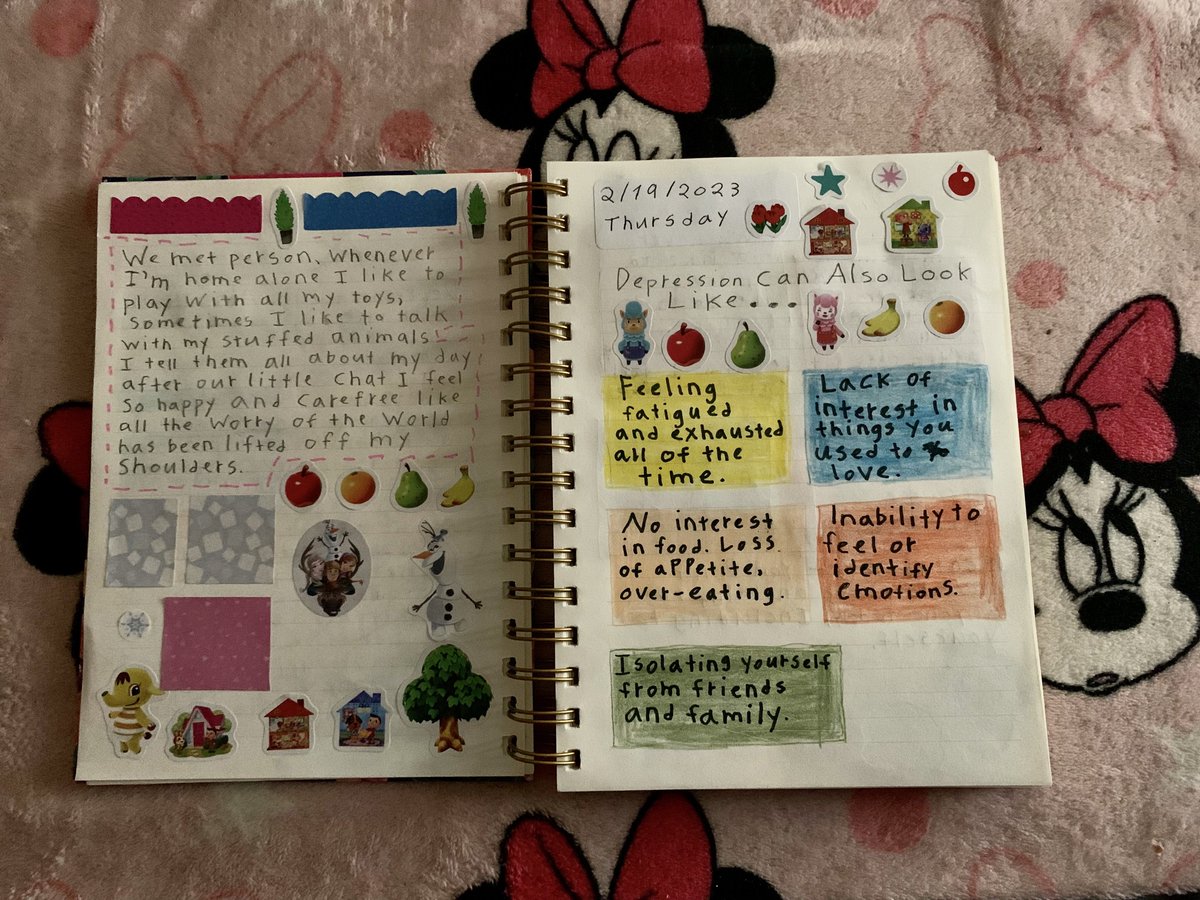 We met person. Whenever
I'm home alone I like to
play with all my toys,
sometimes I like to talk
with my stuffed animals
I tell them all about my day
after our little chat I feel
so happy and carefree like
all the worry of the world
has been lifted off my
shoulders.
2/19/2023
Thursday
Depression Can Also Look
Like...
Feeling
fatigued
and exhausted
all of the
time.
Lack of
interest in
things you
used to
love.
No interest
in food. Loss
of appetite,
over-eating.
Inability to
feel or
identify
emotions.
Isolating yourself
from friends
and family.